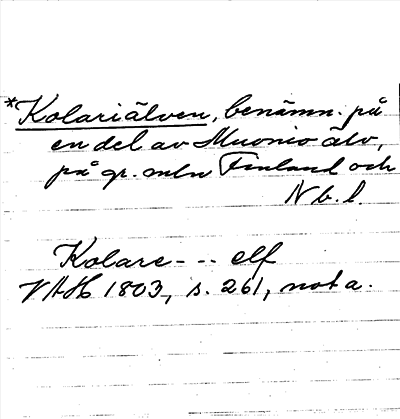 *Kolariälven, benämn. på
en del av Muonio älv,
på gr. mln Finland och
N b. l.
Kolare- -- elf
VAH 1803, s. 261, not a.